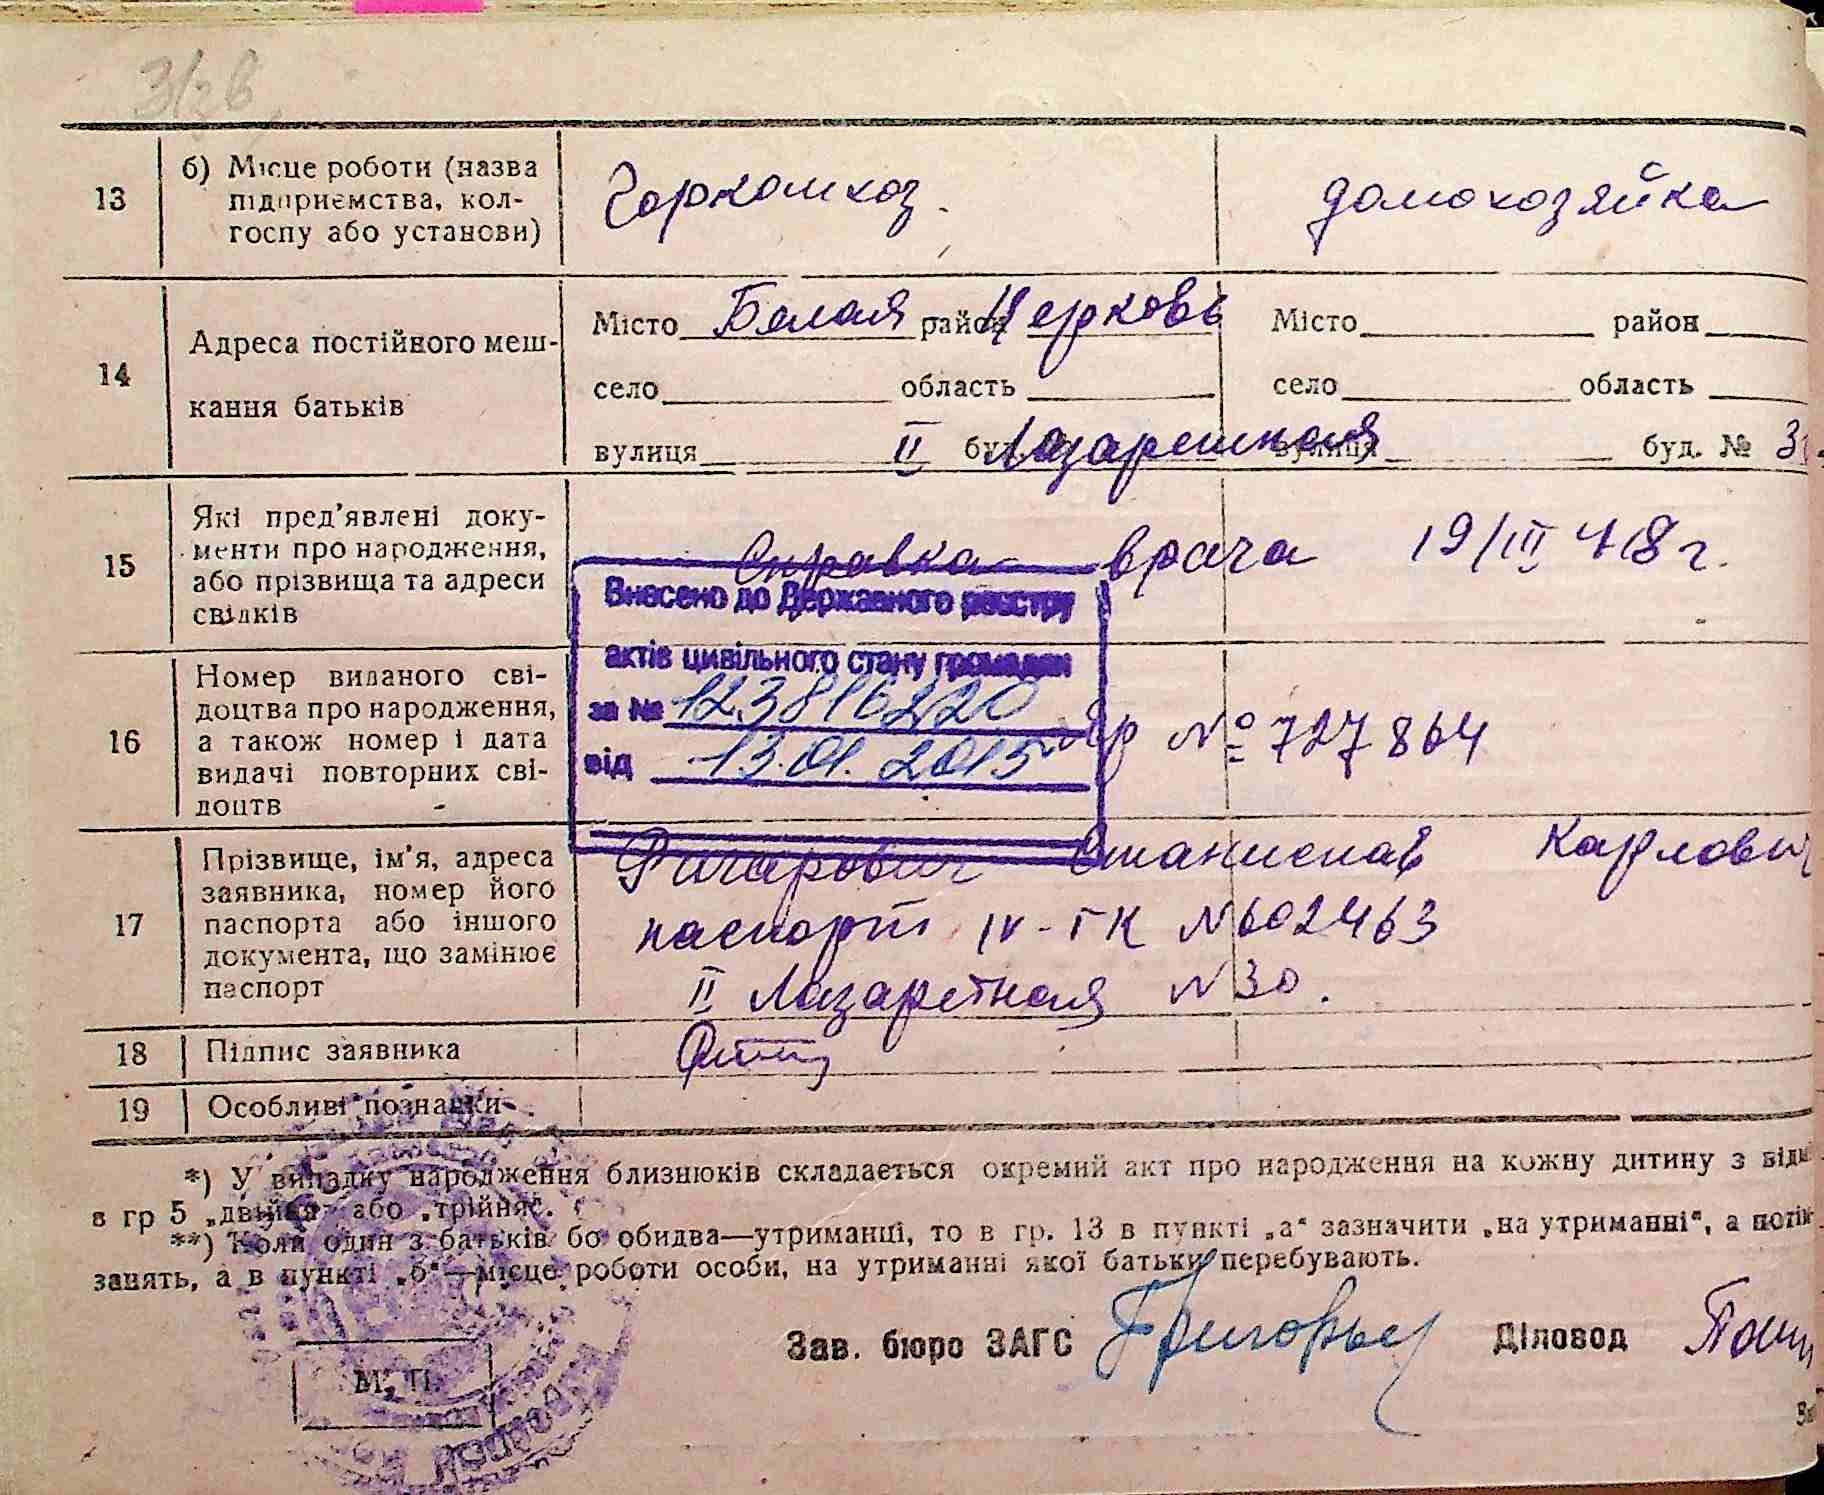 13
б) Місце роботи (назва
підприємства, кол-
госпу або установи)
Горкомхоз.
домохозяйка
14
Адреса постійного меш-
кання батьків
Місто Белая район Церковь
село область
вулиця II буд. Лазаретная
Місто район
село область
вулиця буд. №
15
Які пред'явлені доку-
менти про народження,
або прізвища та адреси
свідків
Справка врача 19/III 48 г.
Внесено до Державного реєстру
актів цивільного стану громадян
за № 123816220
від 13.01.2015
16
Номер виданого сві-
доцтва про народження,
а також номер і дата
видачі повторних сві-
доцтв
№ 727864
17
Прізвище, ім'я, адреса
заявника, номер його
паспорта або іншого
документа, що замінює
паспорт
Станислав Карлович
паспорт IV-ГК №602463
II Лазаретная №30.
18
Підпис заявника
19
Особливі познавки
*) У випадку народження близнюків складається окремий акт про народження на кожну дитину з
в гр 5 „двійня“ або „трійня“.
**) Коли один з батьків бо обидва—утриманці, то в гр. 13 в пункті „а“ зазначити „на утриманні“, а
занять, а в пункті „б“—місце роботи особи, на утриманні якої батьки перебувають.
Зав. бюро ЗАГС
Діловод
М. П.